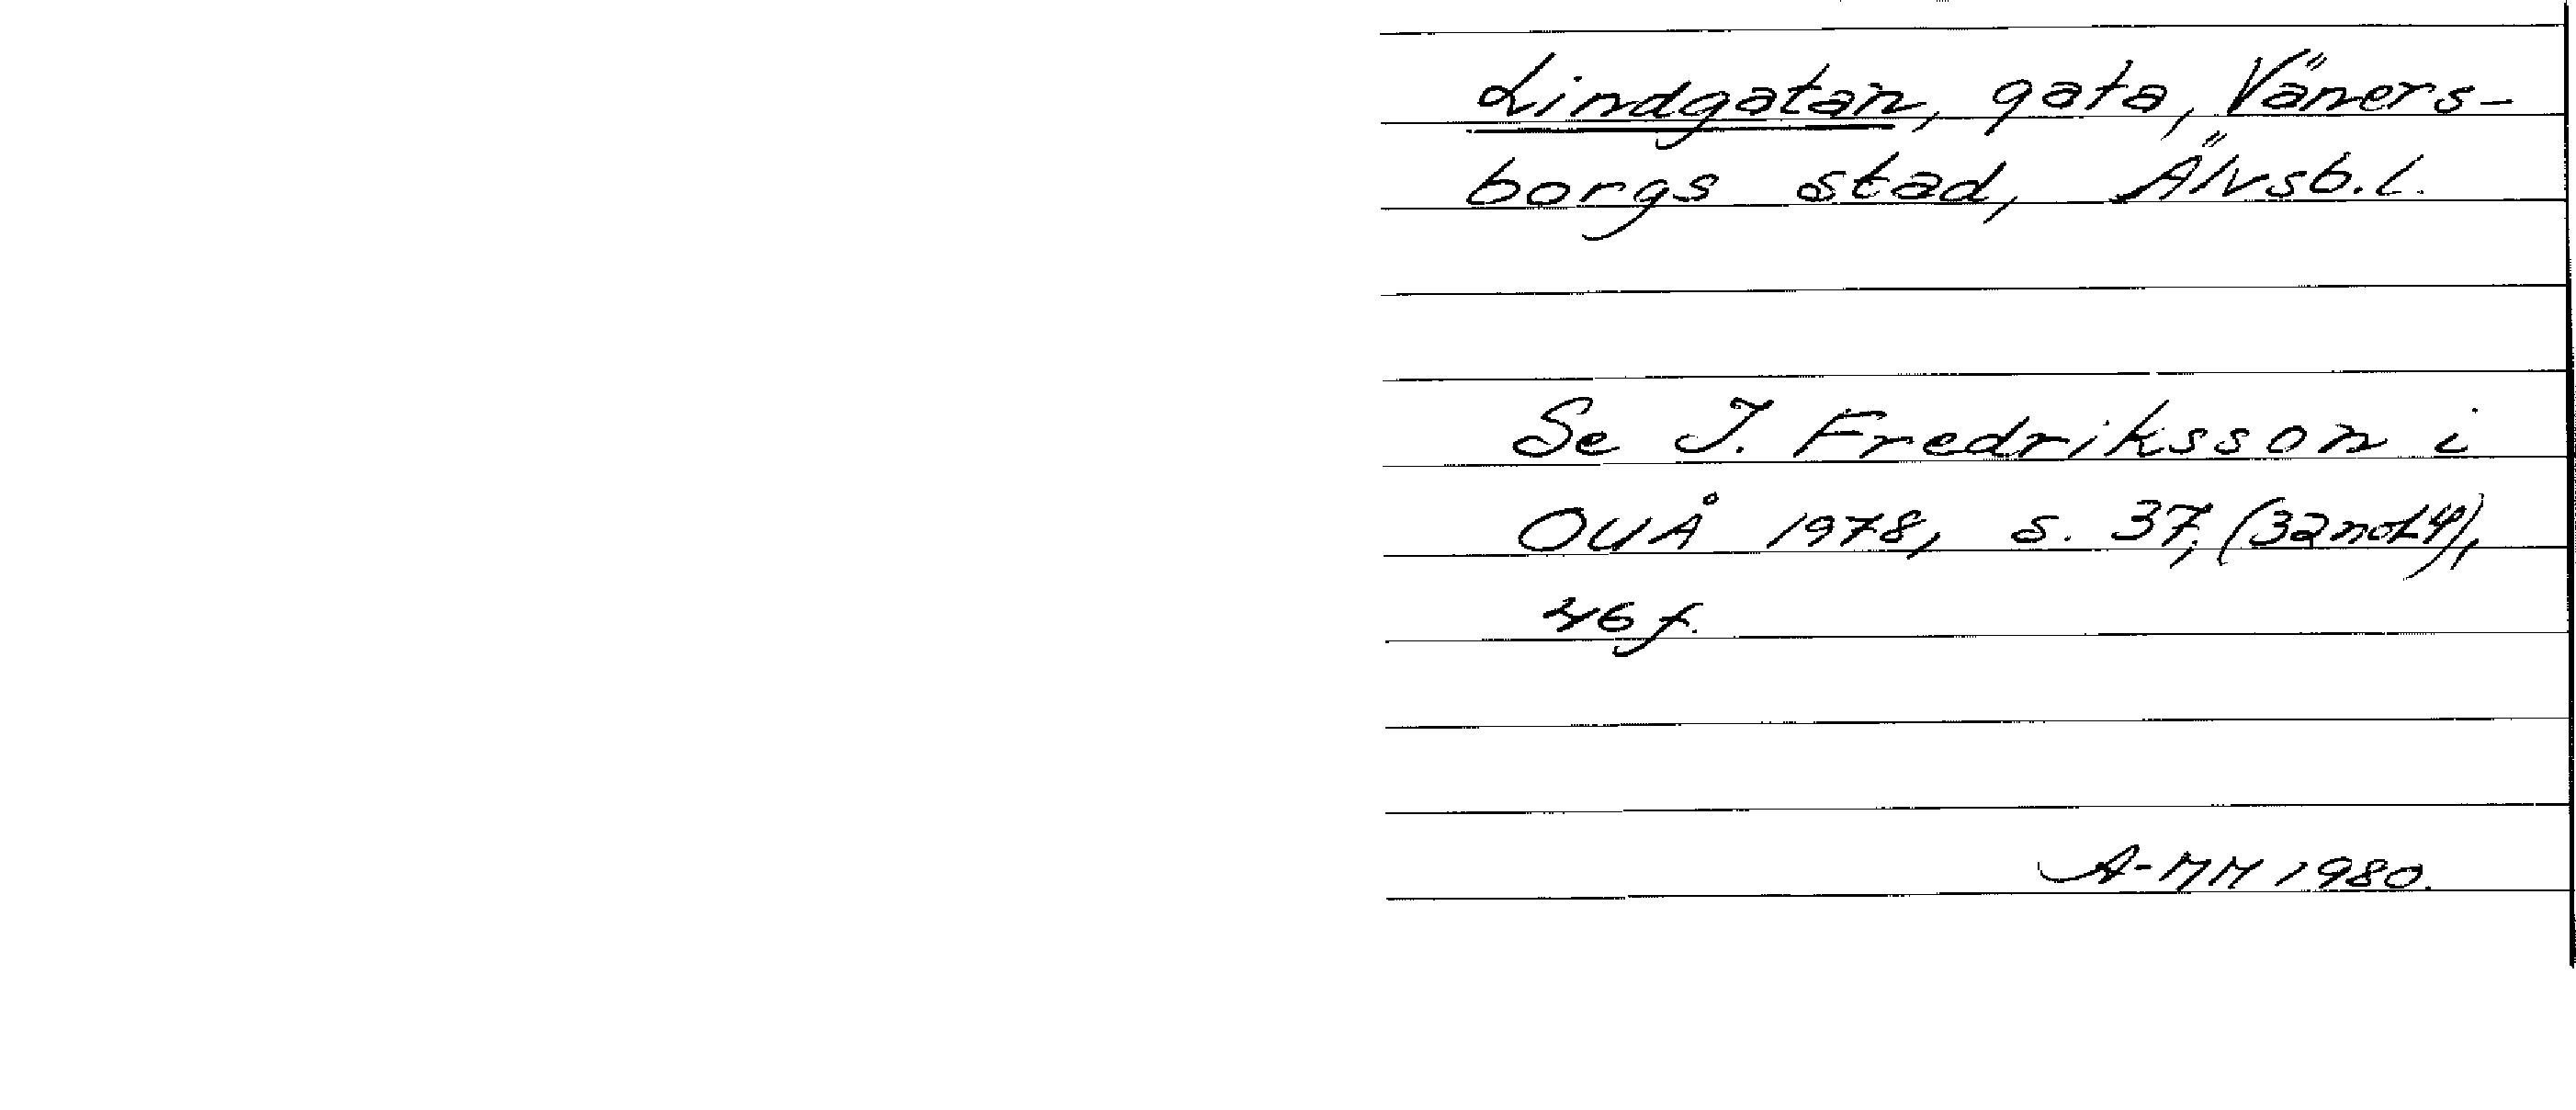 Lindgatan, gata, Väners-
borgs stad, Älvsb.l.
Se I. Fredriksson i
OUÅ 1978, s. 37, (32 not 4),
46 f.
A-MM 1980.